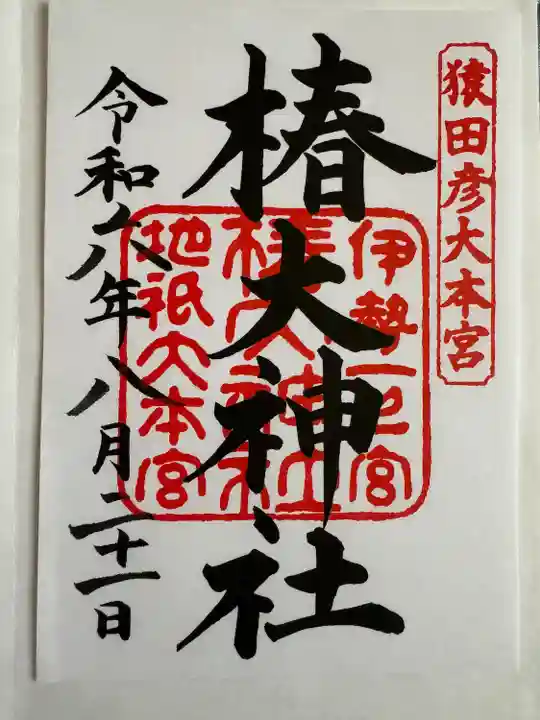 猿田彦大本宮
椿大神社
伊勢一宮
椿大神社
地祇大本宮
令和六年八月二十一日